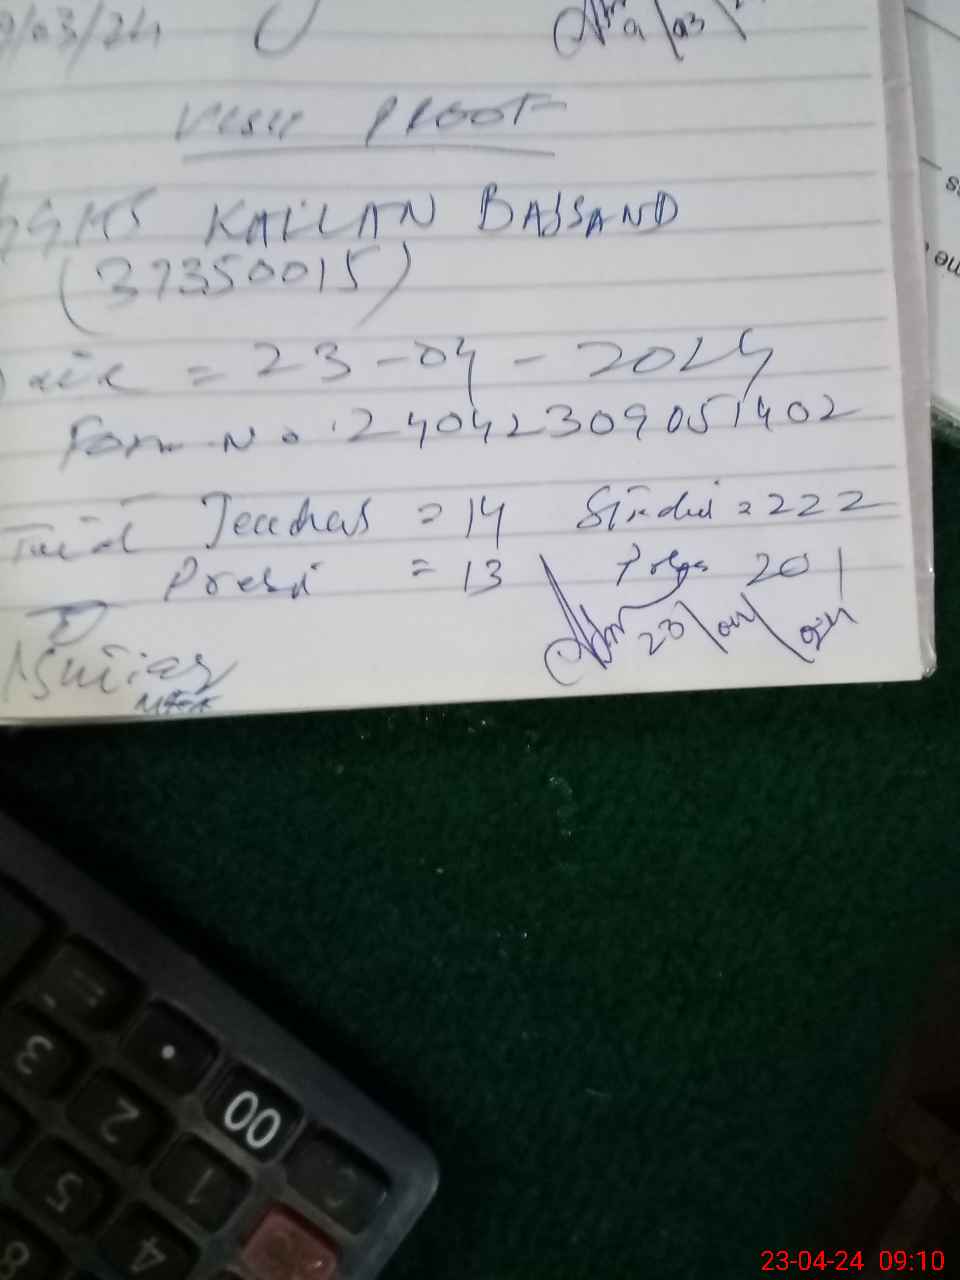 /03/24
03
VISIT PROOF
GGHS KALLAN BASSAND
(37350015)
Date = 23-04-2024
Form No. 24042309051402
Total Teachers = 14 Student = 222
Present = 13 Pres 201
23/04/024
00
3
2
1
5
4
8
23-04-24 09:10